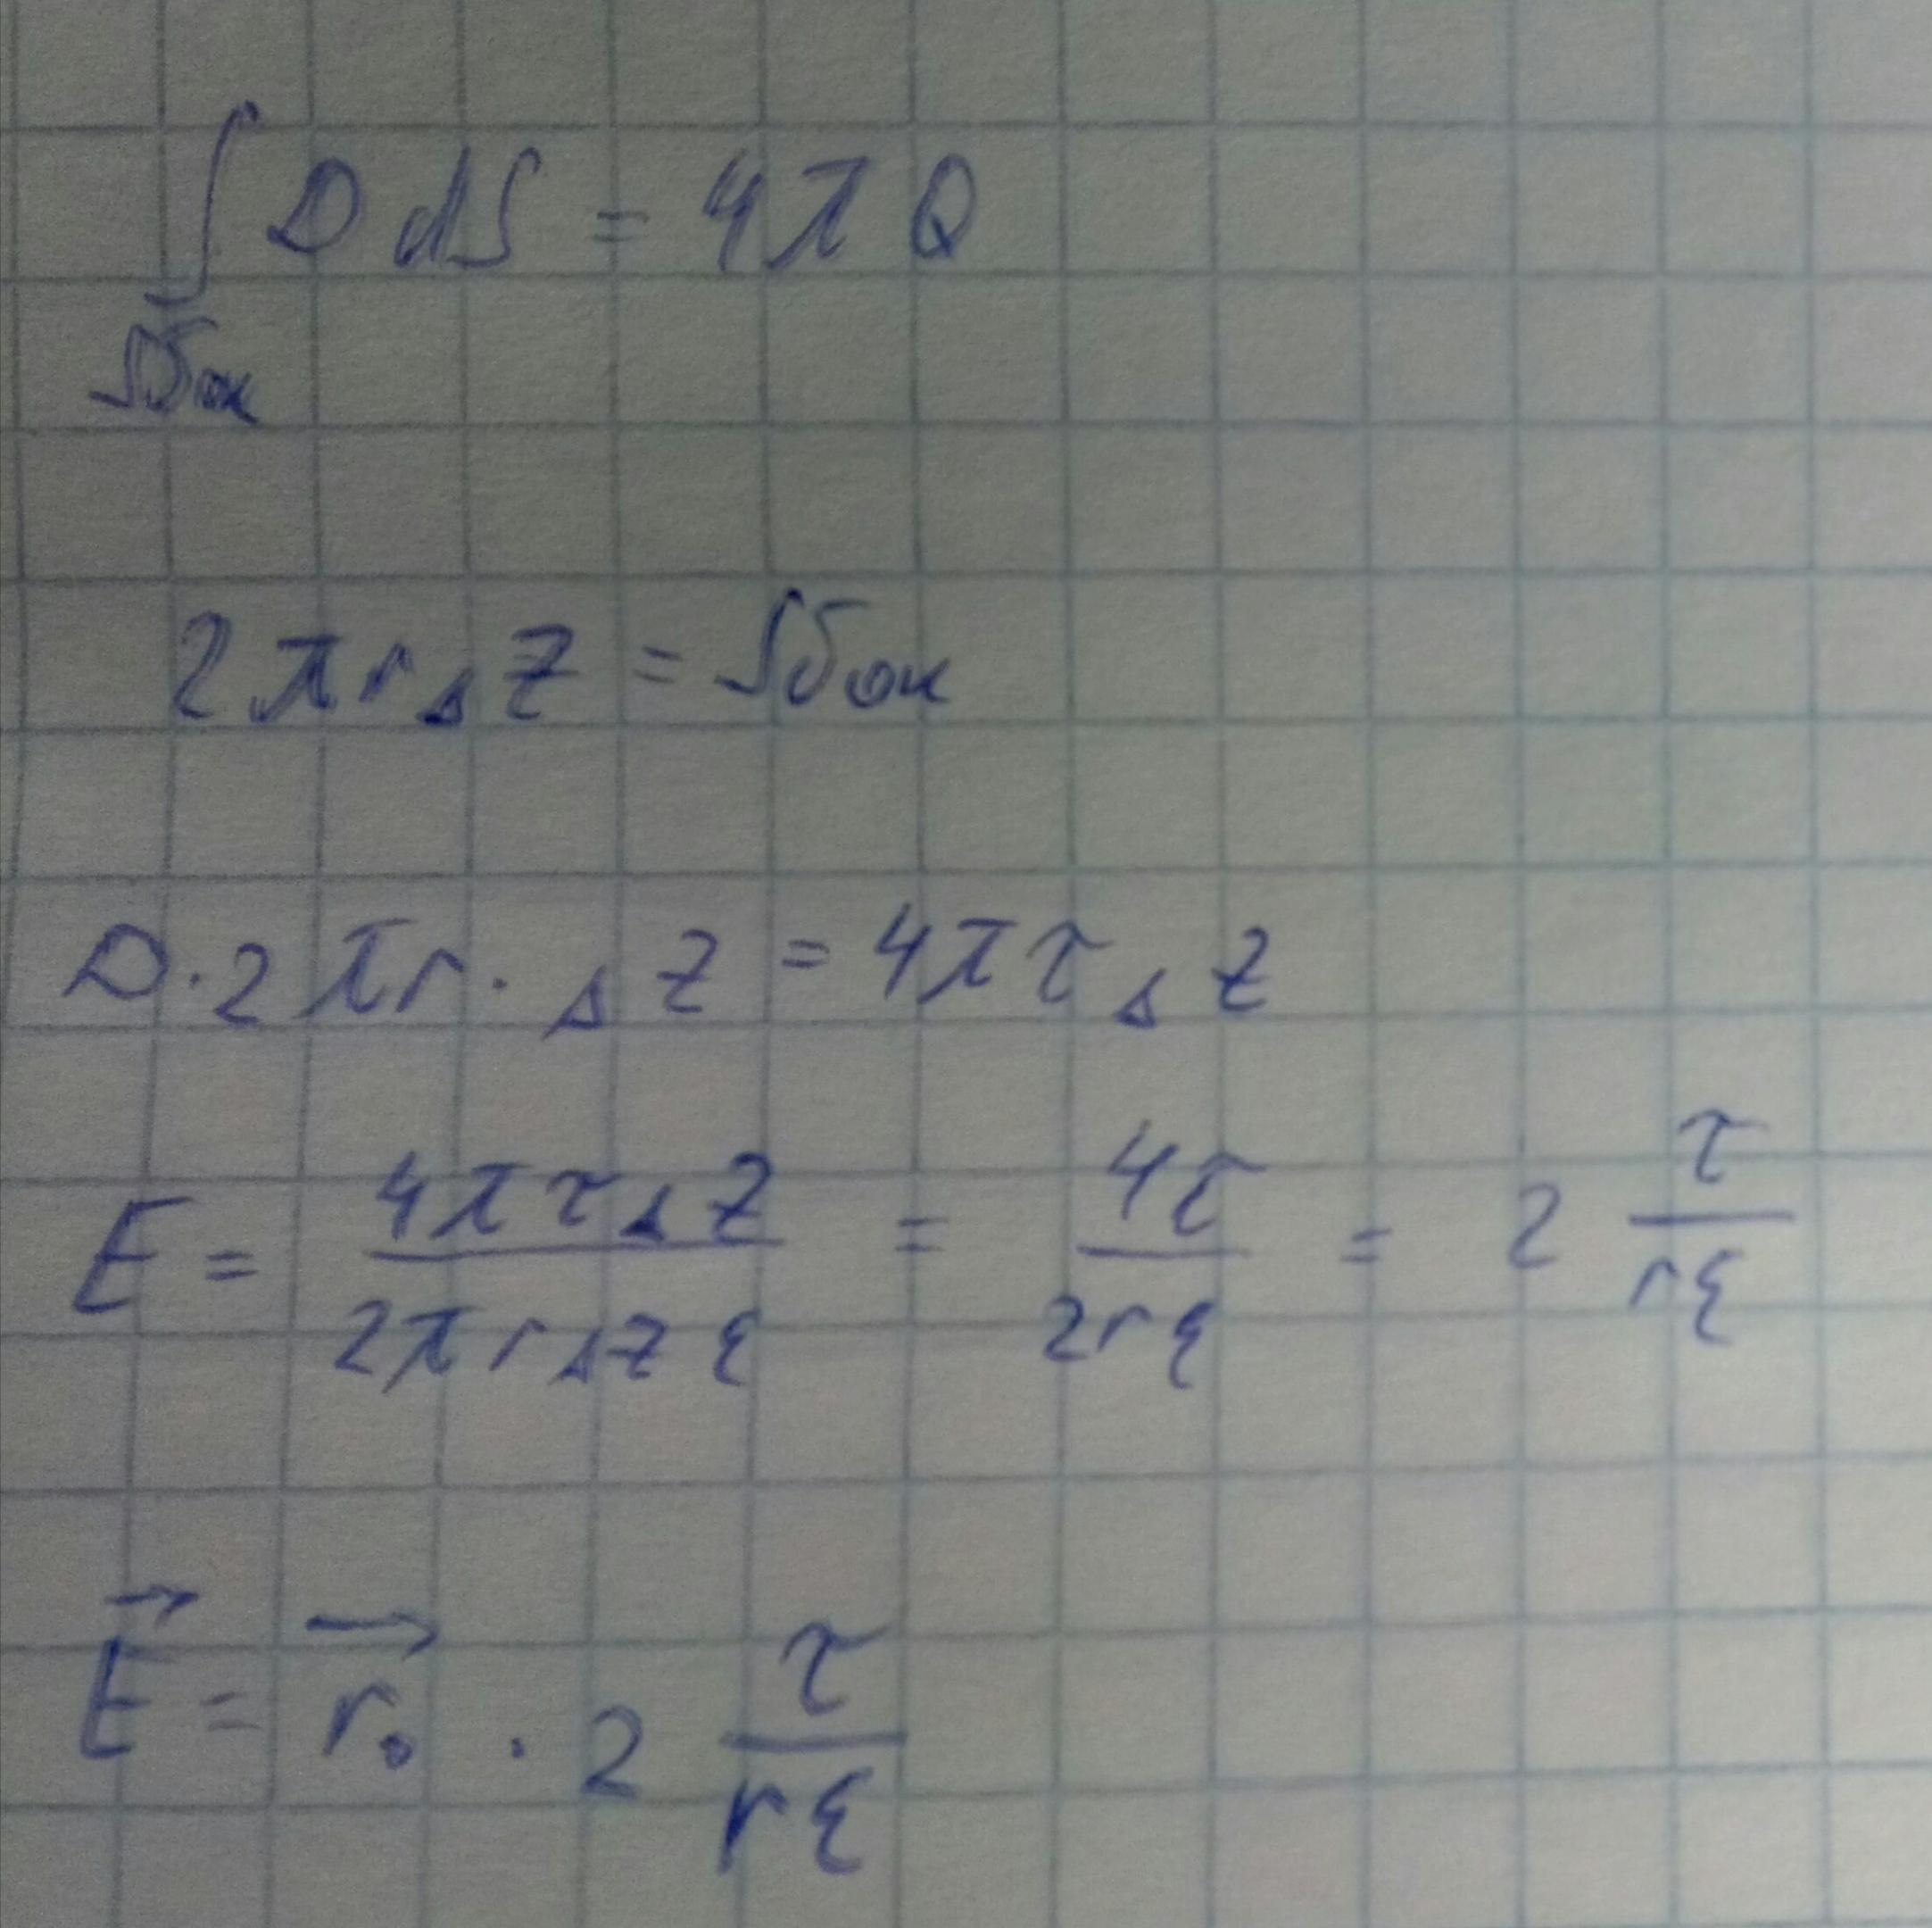 ∫ D dS = 4πQ
Sбок
2πrΔZ = Sбок
D·2πr·ΔZ = 4πτΔZ
E = 4πτΔZ / 2πrΔzε = 4τ / 2rε = 2 τ / rε
E⃗ = r₀⃗ · 2 τ / rε